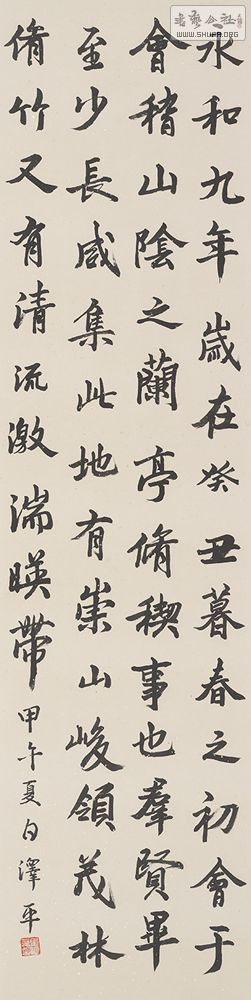 永和九年歲在癸丑暮春之初會于
會稽山陰之蘭亭脩稧事也羣賢畢
至少長咸集此地有崇山峻領茂林
脩竹又有清流激湍暎帶
甲午夏白澤平
書藝公社
WWW.SHUFA.ORG